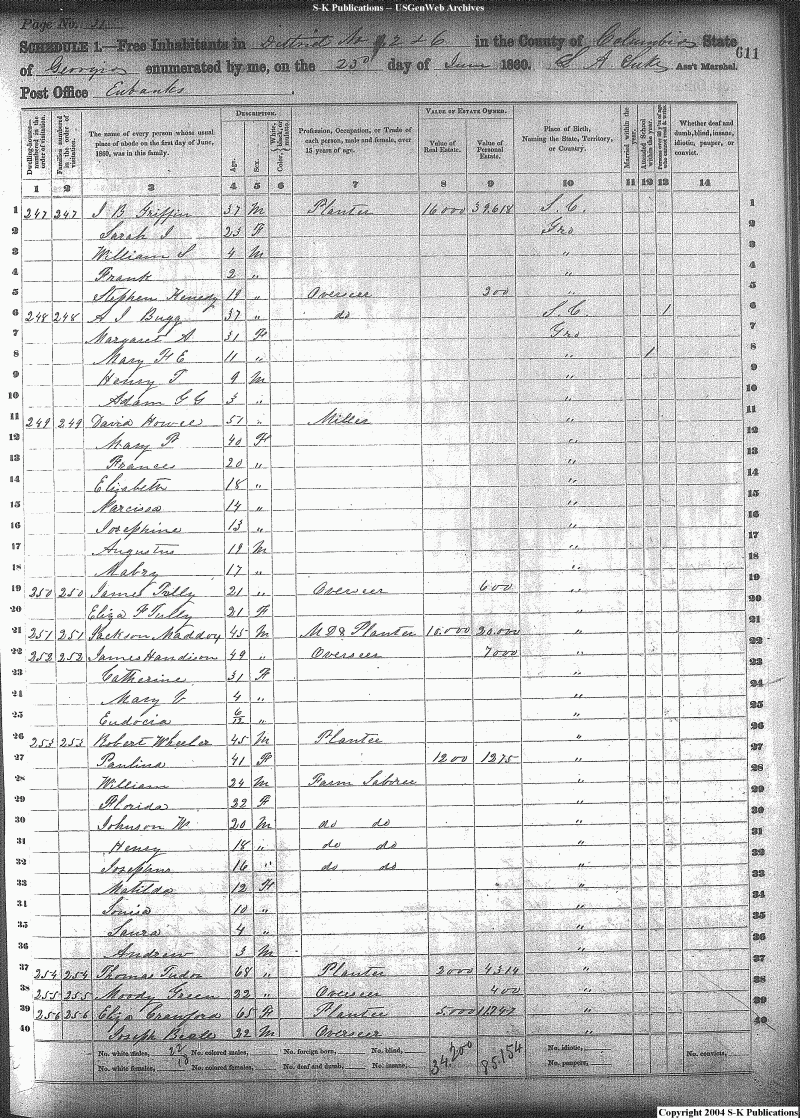 S-K Publications -- USGenWeb Archives
Page No. 31
SCHEDULE 1.—Free Inhabitants in District No 2 & 6 in the County of Columbia State
of Georgia enumerated by me, on the 23d day of June 1860. Ass't Marshal.
611
Post Office Eubanks
Dwelling-houses numbered in the order of visitation.
Families numbered in the order of visitation.
The name of every person whose usual place of abode on the first day of June, 1860, was in this family.
DESCRIPTION.
Age.
Sex.
Color, White, black, or mulatto.
Profession, Occupation, or Trade of each person, male and female, over 15 years of age.
VALUE OF ESTATE OWNED.
Value of Real Estate.
Value of Personal Estate.
Place of Birth, Naming the State, Territory, or Country.
Married within the year.
Attended School within the year.
Persons over 20 y'rs of age who cannot read & write.
Whether deaf and dumb, blind, insane, idiotic, pauper, or convict.
1 2 3 4 5 6 7 8 9 10 11 12 13 14
1 247 247 J B Griffin 37 M Planter 16000 39,618 S. C. 1
2 Sarah J 23 F Geo 2
3 William S 4 M " 3
4 Frank 2 " " 4
5 Stephen Kenedy 19 " Overseer 300 " 5
6 248 248 A J Bugg 37 " do S. C 1 6
7 Margaret A 31 F Geo 7
8 Mary F E 11 " " 1 8
9 Henry T 9 M " 9
10 Adam G G 3 " " 10
11 249 249 David Howell 51 " Miller " 11
12 Mary P 40 F " 12
13 Frances 20 " " 13
14 Elizabeth 18 " " 14
15 Narcissa 14 " " 15
16 Josephine 13 " " 16
17 Augustus 19 M " 17
18 Mabry 17 " " 18
19 250 250 James Tully 21 " Overseer 600 " 19
20 Eliza F Tully 21 F " 20
21 251 251 Jackson Maddox 45 M MD & Planter 10.000 20.000 " 22
22 252 252 James Handison 49 " Overseer 7000 " 23
23 Catherine 31 F " 24
24 Mary V 4 " " 25
25 Eudocia 6/12 " " 26
26 253 253 Robert Wheeler 45 M Planter " 27
27 Paulina 41 F 1200 1275 " 28
28 William 24 M Farm Laborer " 29
29 Florida 22 F " 30
30 Johnson W 20 M do do " 31
31 Henry 18 " do do " 32
32 Josephus 16 " do do " 33
33 Matilda 12 F " 34
34 Louisa 10 " " 35
35 Laura 4 " " 36
36 Andrew 3 M " 37
37 254 254 Thomas Tudor 68 " Planter 2000 4314 " 38
38 255 255 Moody Green 22 " Overseer 400 " 39
39 256 256 Eliza Crawford 65 F Planter 5.000 11,747 " 40
40 Joseph Beall 22 M Overseer "
No. white males, 22 No. colored males, No. foreign born, No. blind, 34,200 85,154 No. idiotic, No. convicts,
No. white females, 18 No. colored females, No. deaf and dumb, No. insane, No. paupers,
Copyright 2004 S-K Publications